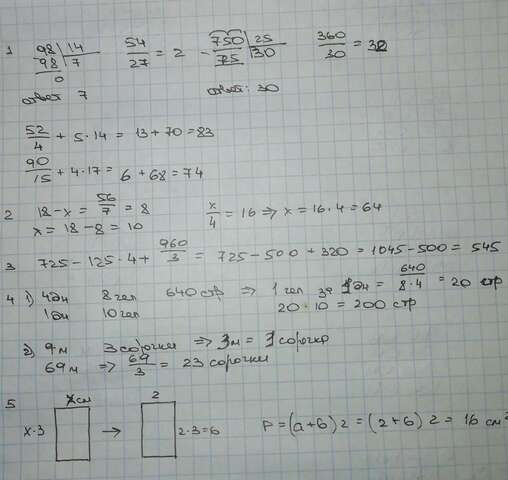 1 98 | 14 54/27 = 2 - 750 | 25 360/30 = 32
98 | 7 75 | 30
0
ответ 7 ответ: 30
52/4 + 5·14 = 13 + 70 = 83
90/15 + 4·17 = 6 + 68 = 74
2 18 - x = 56/7 = 8 x/4 = 16 ⇒ x = 16·4 = 64
x = 18 - 8 = 10
3 725 - 125·4 + 960/3 = 725 - 500 + 320 = 1045 - 500 = 545
4 1) 4дн 8 чел 640 стр ⇒ 1 чел за 1дн = 640/8·4 = 20 стр
1дн 10 чел 20·10 = 200 стр
2) 9м 3 сорочки ⇒ 3м = 1 сорочка
69м ⇒ 69/3 = 23 сорочки
5 xсм 2
x·3 → 2·3=6 P = (a+b) 2 = (2+6) 2 = 16 см²